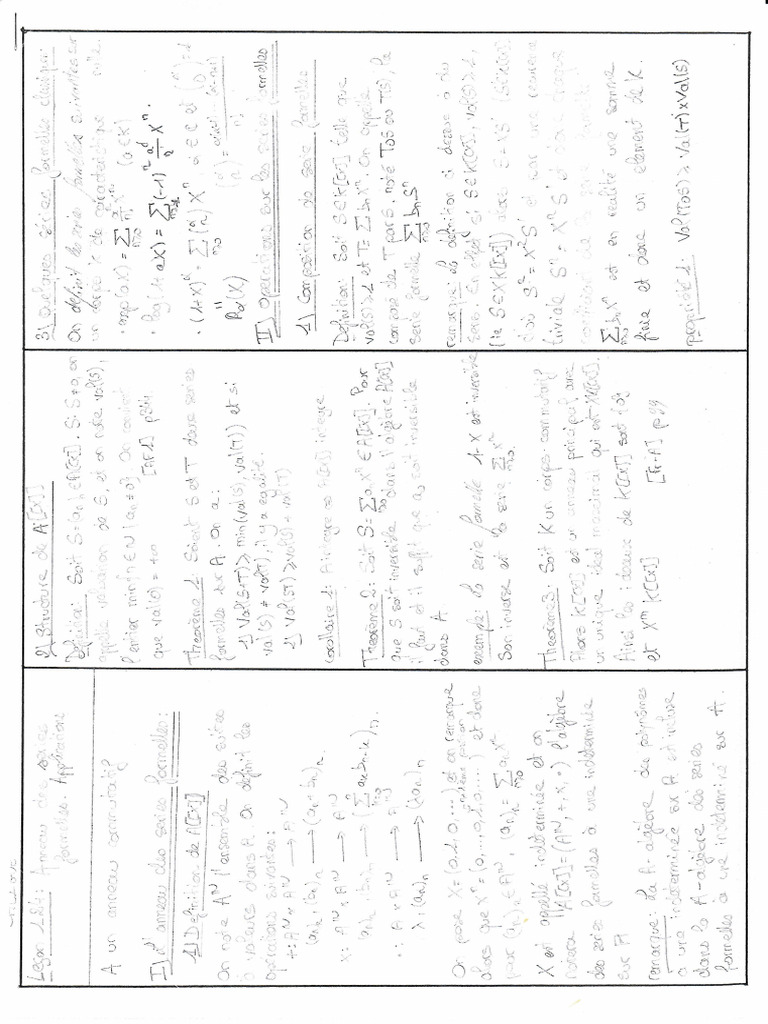 Leçon 124: Anneau des séries
formelles. Applications
A un anneau commutatif
I) L'anneau des séries formelles:
1) Définition de A[[X]]
On note A^ℕ l'ensemble des suites
à valeurs dans A. On définit les
opérations suivantes:
+: A^ℕ × A^ℕ → A^ℕ
(an)n, (bn)n → (an+bn)n
×: A^ℕ × A^ℕ → A^ℕ
(an)n, (bn)n → (∑ ak bn-k)n
·: A × A^ℕ → A^ℕ
λ, (an)n → (λan)n
On pose X = (0,1,0,...) et on remarque
alors que X^n = (0,...,0,1,0,...) et donc
pour (an)n ∈ A^ℕ, (an)n = ∑ an X^n
X est appelé indéterminée et on
notera A[[X]] = (A^ℕ, +, ×, ·) l'algèbre
des séries formelles à une indéterminée
sur A
remarque: La A-algèbre des polynômes
à une indéterminée sur A est incluse
dans la A-algèbre des séries
formelles à une indéterminée sur A.
2) Structure de A[[X]]
Définition: Soit S=(an) ∈ A[[X]]. Si S≠0, on
appelle valuation de S, et on note val(S),
l'entier min{n∈ℕ | an≠0}. On convient
que val(0) = +∞
Théorème 1: Soient S et T deux séries
formelles sur A. On a:
1) Val(S+T) ≥ min(val(S), val(T)) et si
val(S) ≠ val(T), il y a égalité.
2) Val(ST) ≥ val(S) + val(T)
Corollaire 1: A intègre ⇒ A[[X]] intègre
Théorème 2: Soit S = ∑ an X^n ∈ A[[X]]. Pour
que S soit inversible dans l'algèbre A[[X]]
il faut et il suffit que a0 soit inversible
dans A.
exemple: la série formelle 1-X est inversible
Son inverse est la série ∑ X^n
Théorème 3: Soit K un corps commutatif
Alors K[[X]] est un anneau principal avec
un unique idéal maximal qui est XK[[X]].
Ainsi les idéaux de K[[X]] sont {0}
et X^m K[[X]]
3) Quelques séries formelles classiques
On définit les séries formelles suivantes sur
un corps K de caractéristique nulle.
• exp(aX) = ∑ a^n/n! X^n (a∈K)
• (1+X)^α = ∑ (α n) X^n α∈ℂ et (α 0)=1
II) Opérations sur les séries formelles
1) Composition de série formelles
Définition: Soit S∈K[[X]] telle que
val(S)≥1 et T=∑ bn X^n. On appelle
composé de T par S, noté T∘S ou T(S), la
série formelle ∑ bn S^n
remarque: la définition ci dessus a du
sens. En effet si S∈K[[X]], val(S)≥1,
(ie S∈XK[[X]]) alors S=XS' (S'∈K[[X]])
d'où S² = X²S'² et par une récurrence
triviale S^n = X^n S'^n
est en réalité une somme
finie et donc un élément de K.
propriété 1: Val(T∘S) ≥ Val(T)×Val(S)